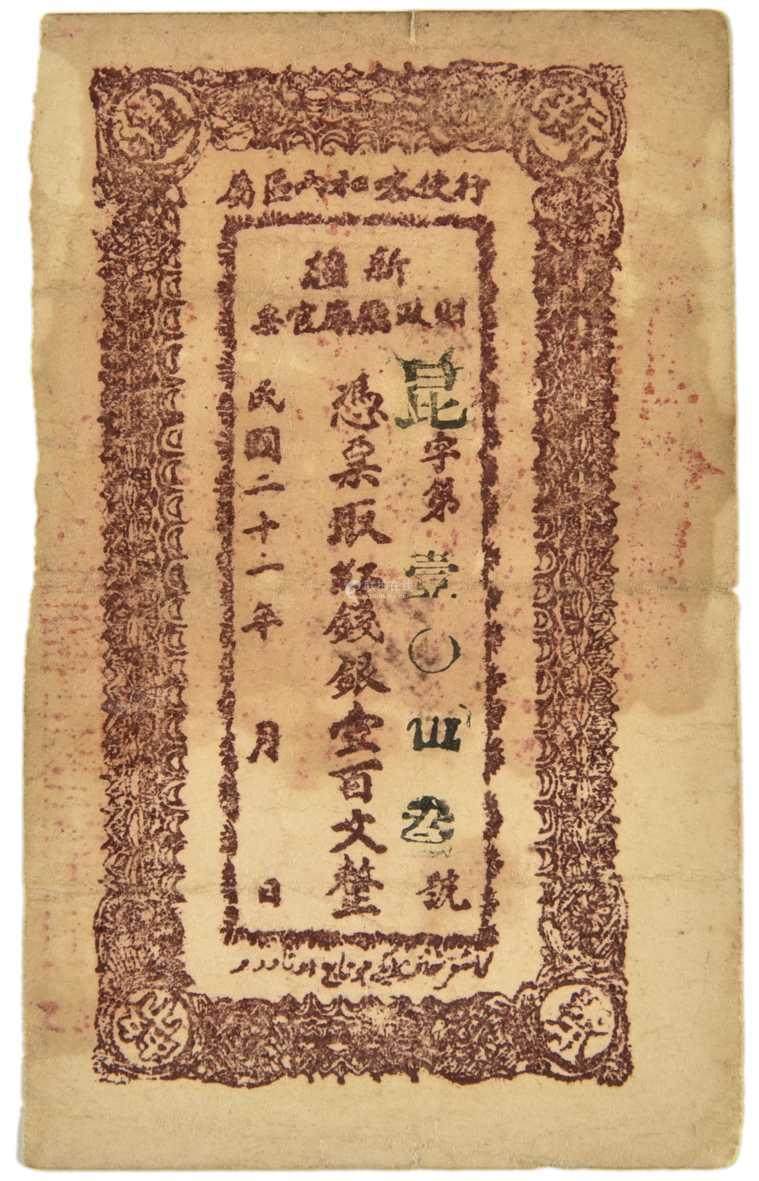 行使喀和兩區屬
新疆
財政廳庫官票
昆字第壹〇四叁號
憑票取紅錢銀壹百文整
民國二十一年 月 日